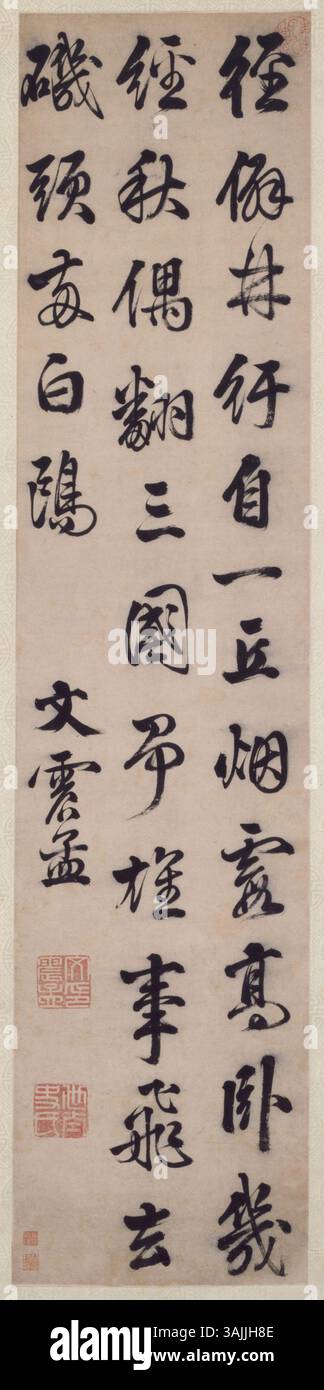 徑僻林紆自一丘烟霞高臥幾
經秋偶翻三國爭雄事飛去
磯頭兩白鷗
文震孟
alamy
Image ID: 3AJJH8E
www.alamy.com